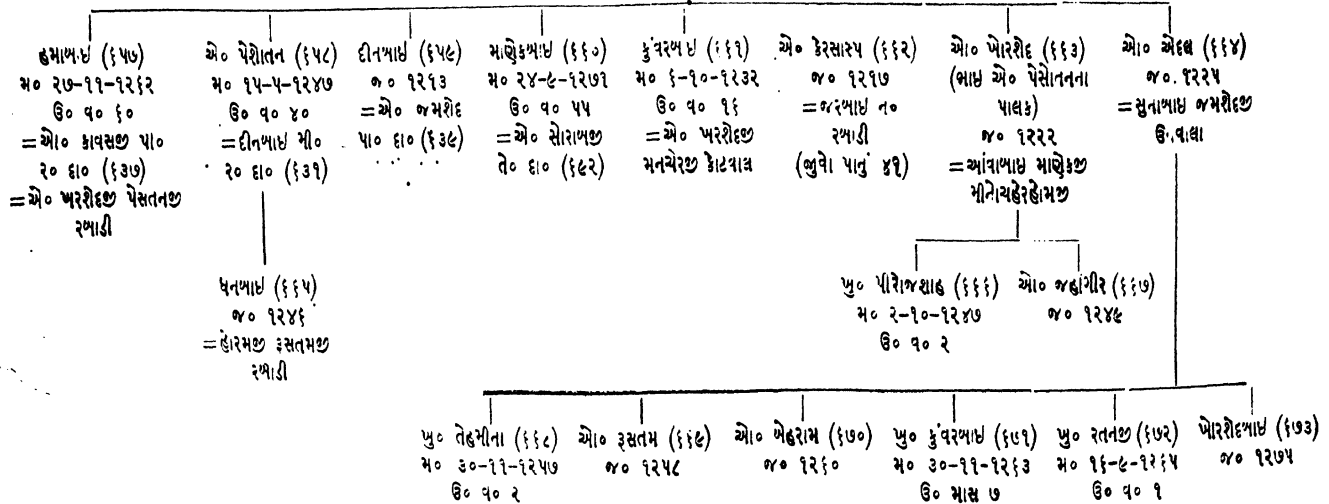 હમાબાઇ (૬૫૭)
મ૦ ૨૭-૧૧-૧૨૬૨
ઉ૦ વ૦ ૬૦
=ઓ૦ કાવસજી પા૦
ર૦ દા૦ (૬૩૭)
=એ૦ ખરશેદજી પેસતનજી
રબાડી
એ૦ પેશોતન (૬૫૮)
મ૦ ૧૫-૫-૧૨૪૭
ઉ૦ વ૦ ૪૦
=દીનબાઇ મી૦
ર૦ દા૦ (૬૩૧)
દીનબાઇ (૬૫૯)
જ૦ ૧૨૧૩
=એ૦ જમશેદ
પા૦ દા૦ (૬૩૯)
માણેકબાઇ (૬૬૦)
મ૦ ૨૪-૯-૧૨૭૧
ઉ૦ વ૦ ૫૫
=એ૦ સોરાબજી
તે૦ દા૦ (૬૯૨)
કુંવરબાઇ (૬૬૧)
મ૦ ૬-૧૦-૧૨૩૨
ઉ૦ વ૦ ૧૬
=એ૦ ખરશેદજી
મનચેરજી કોટવાલ
એ૦ કેરસાસ્પ (૬૬૨)
જ૦ ૧૨૧૭
=જરબાઇ ન૦
રબાડી
(જુવો પાનું ૪૧)
ઓ૦ ખોરશેદ (૬૬૩)
(ભાઇ એ૦ પેસોતનના
પાલક)
જ૦ ૧૨૨૨
=આંવાબાઇ માણેકજી
મીનોચહેરહોમજી
ઓ૦ એદલ (૬૬૪)
જ૦ ૧૨૨૫
=સુનાબાઇ જમશેદજી
ઉ.વાલા
ધનબાઇ (૬૬૫)
જ૦ ૧૨૪૬
=હોરમજી રૂસતમજી
રબાડી
ખુ૦ પીરોજશાહ (૬૬૬)
મ૦ ૨-૧૦-૧૨૪૭
ઉ૦ વ૦ ૨
ઓ૦ જહાંગીર (૬૬૭)
જ૦ ૧૨૪૯
ખુ૦ તેહમીના (૬૬૮)
મ૦ ૩૦-૧૧-૧૨૫૭
ઉ૦ વ૦ ૨
ઓ૦ રૂસતમ (૬૬૯)
જ૦ ૧૨૫૮
ઓ૦ બેહરામ (૬૭૦)
જ૦ ૧૨૬૦
ખુ૦ કુંવરબાઇ (૬૭૧)
મ૦ ૩૦-૧૧-૧૨૬૩
ઉ૦ માસ ૭
ખુ૦ રતનજી (૬૭૨)
મ૦ ૧૬-૯-૧૨૬૫
ઉ૦ વ૦ ૧
ખોરશેદબાઇ (૬૭૩)
જ૦ ૧૨૭૫